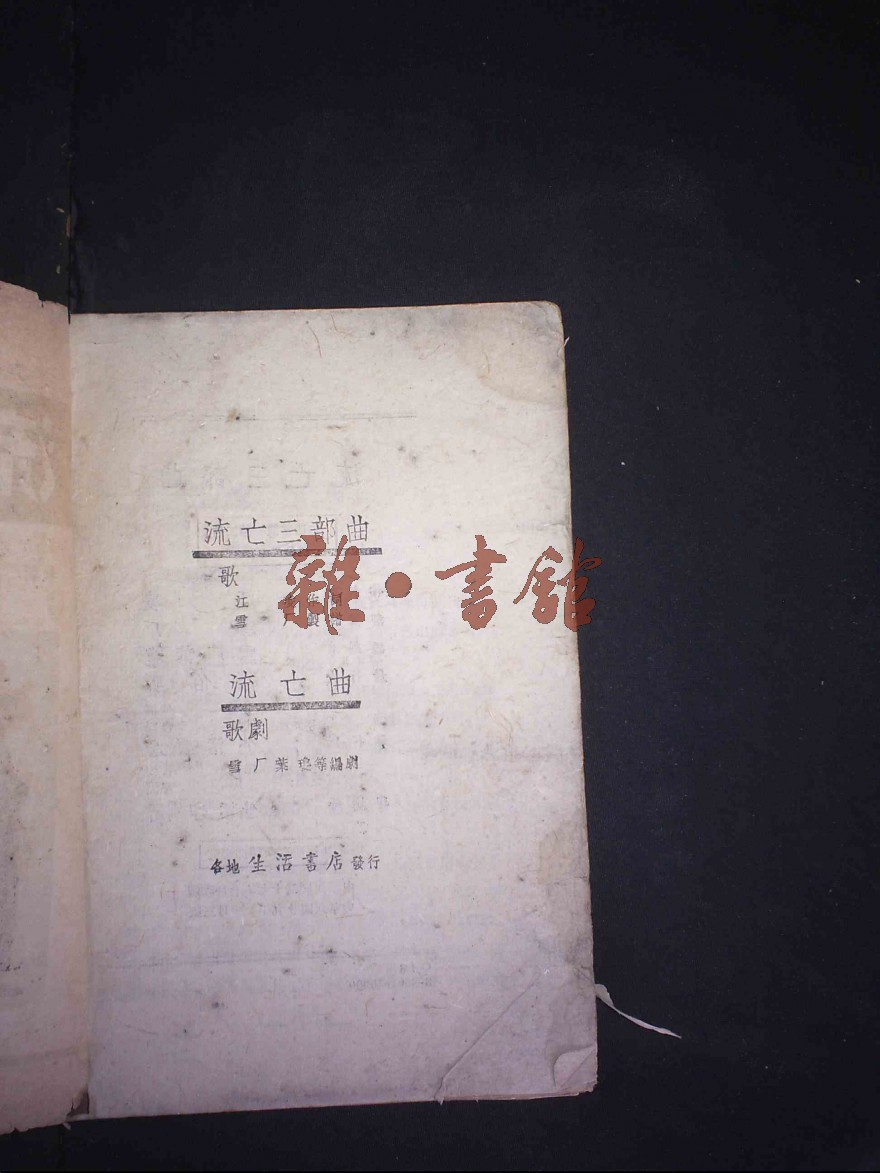 流亡三部曲
歌
江
雪
雜·書館
流亡曲
歌劇
雪厂葉 等編劇
各地生活書店發行